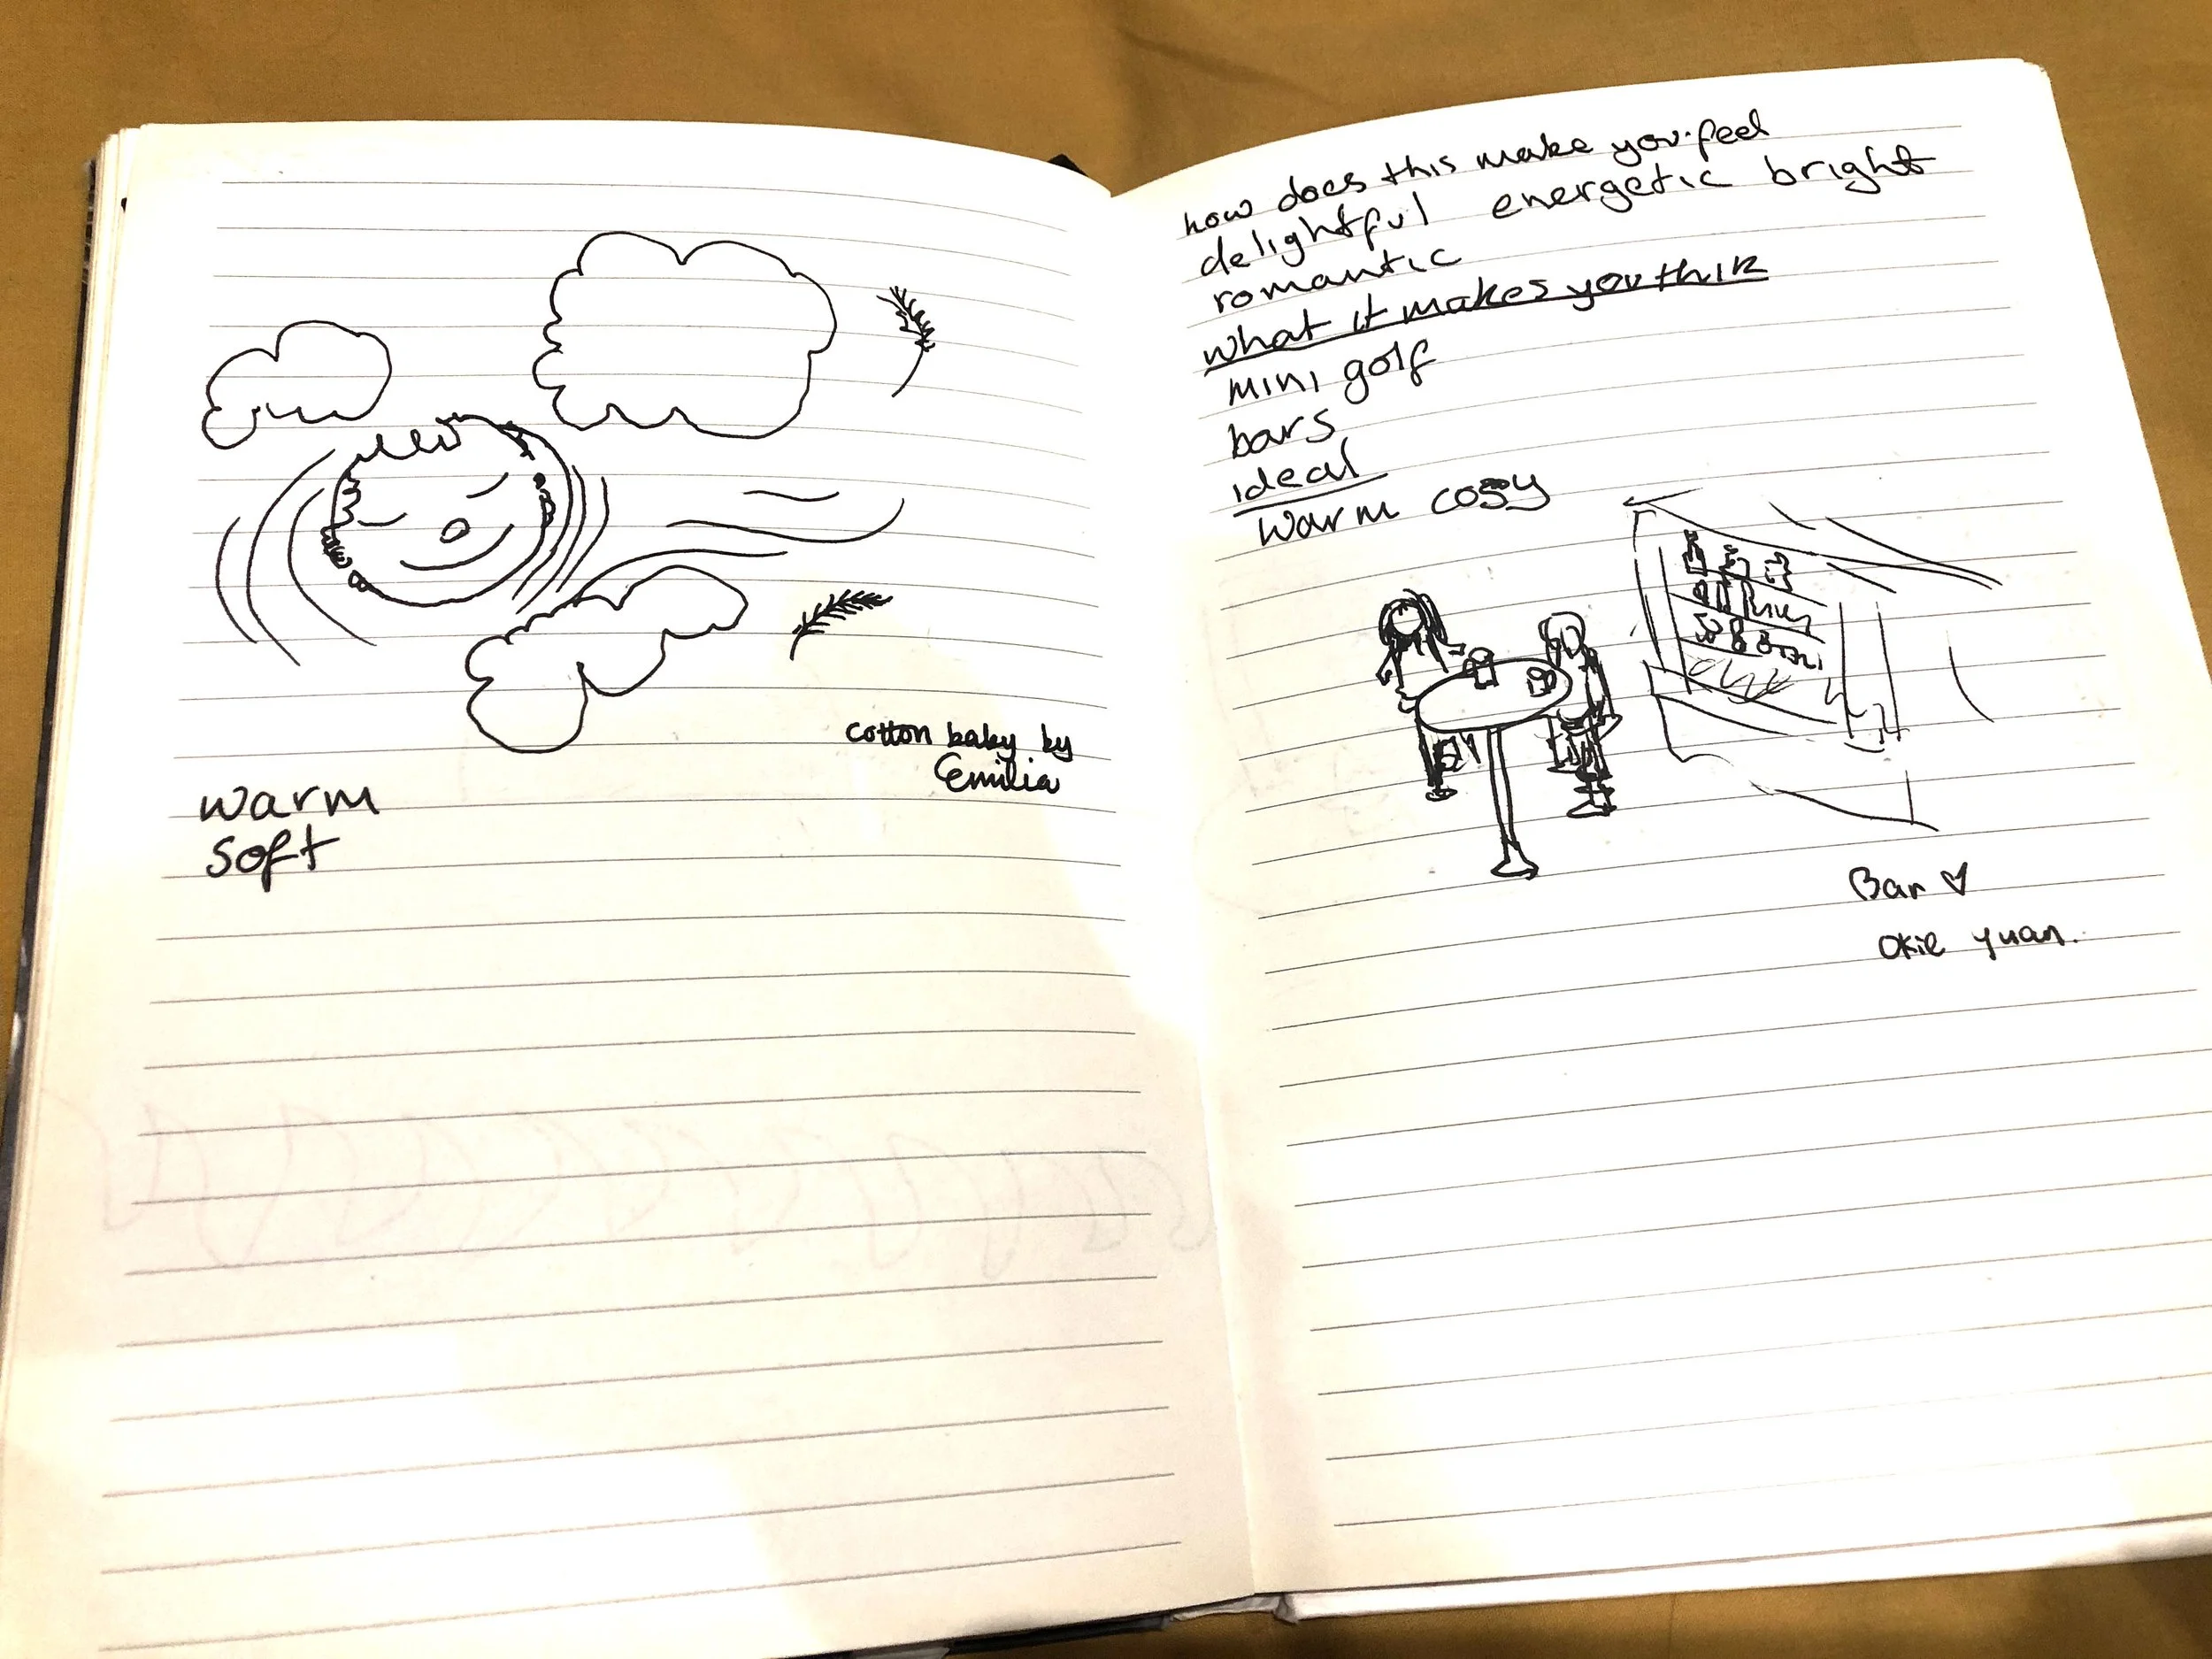 cotton baby by
Emilia
warm
soft
how does this make you feel
delightful energetic bright
romantic
what it makes you thik
mini golf
bars
ideal
warm cosy
Bar ♡
Okie yuan.